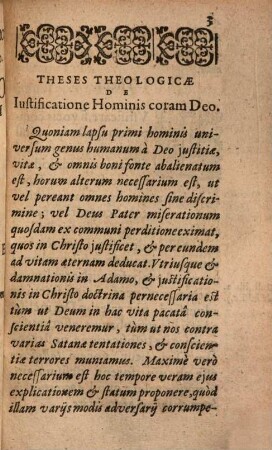 3
THESES THEOLOGICÆ
DE
Iustificatione Hominis coram Deo.
Quoniam lapsu primi hominis uni-
versum genus humanum à Deo justitiæ,
vitæ, & omnis boni fonte abalienatum
est, horum alterum necessarium est, ut
vel pereant omnes homines sine discri-
mine; vel Deus Pater miserationum
quosdam ex communi perditione eximat,
quos in Christo justificet, & per eundem
ad vitam æternam deducat. Vtriusque &
damnationis in Adamo, & justificatio-
nis in Christo doctrina pernecessaria est
tùm ut Deum in hac vita pacatâ con-
scientiâ veneremur, tùm ut nos contra
varias Satanæ tentationes, & conscien-
tiæ terrores muniamus. Maximè verò
necessarium est hoc tempore veram ejus
explicationem & statum proponere, quòd
illam varijs modis adversarij corrumpe-